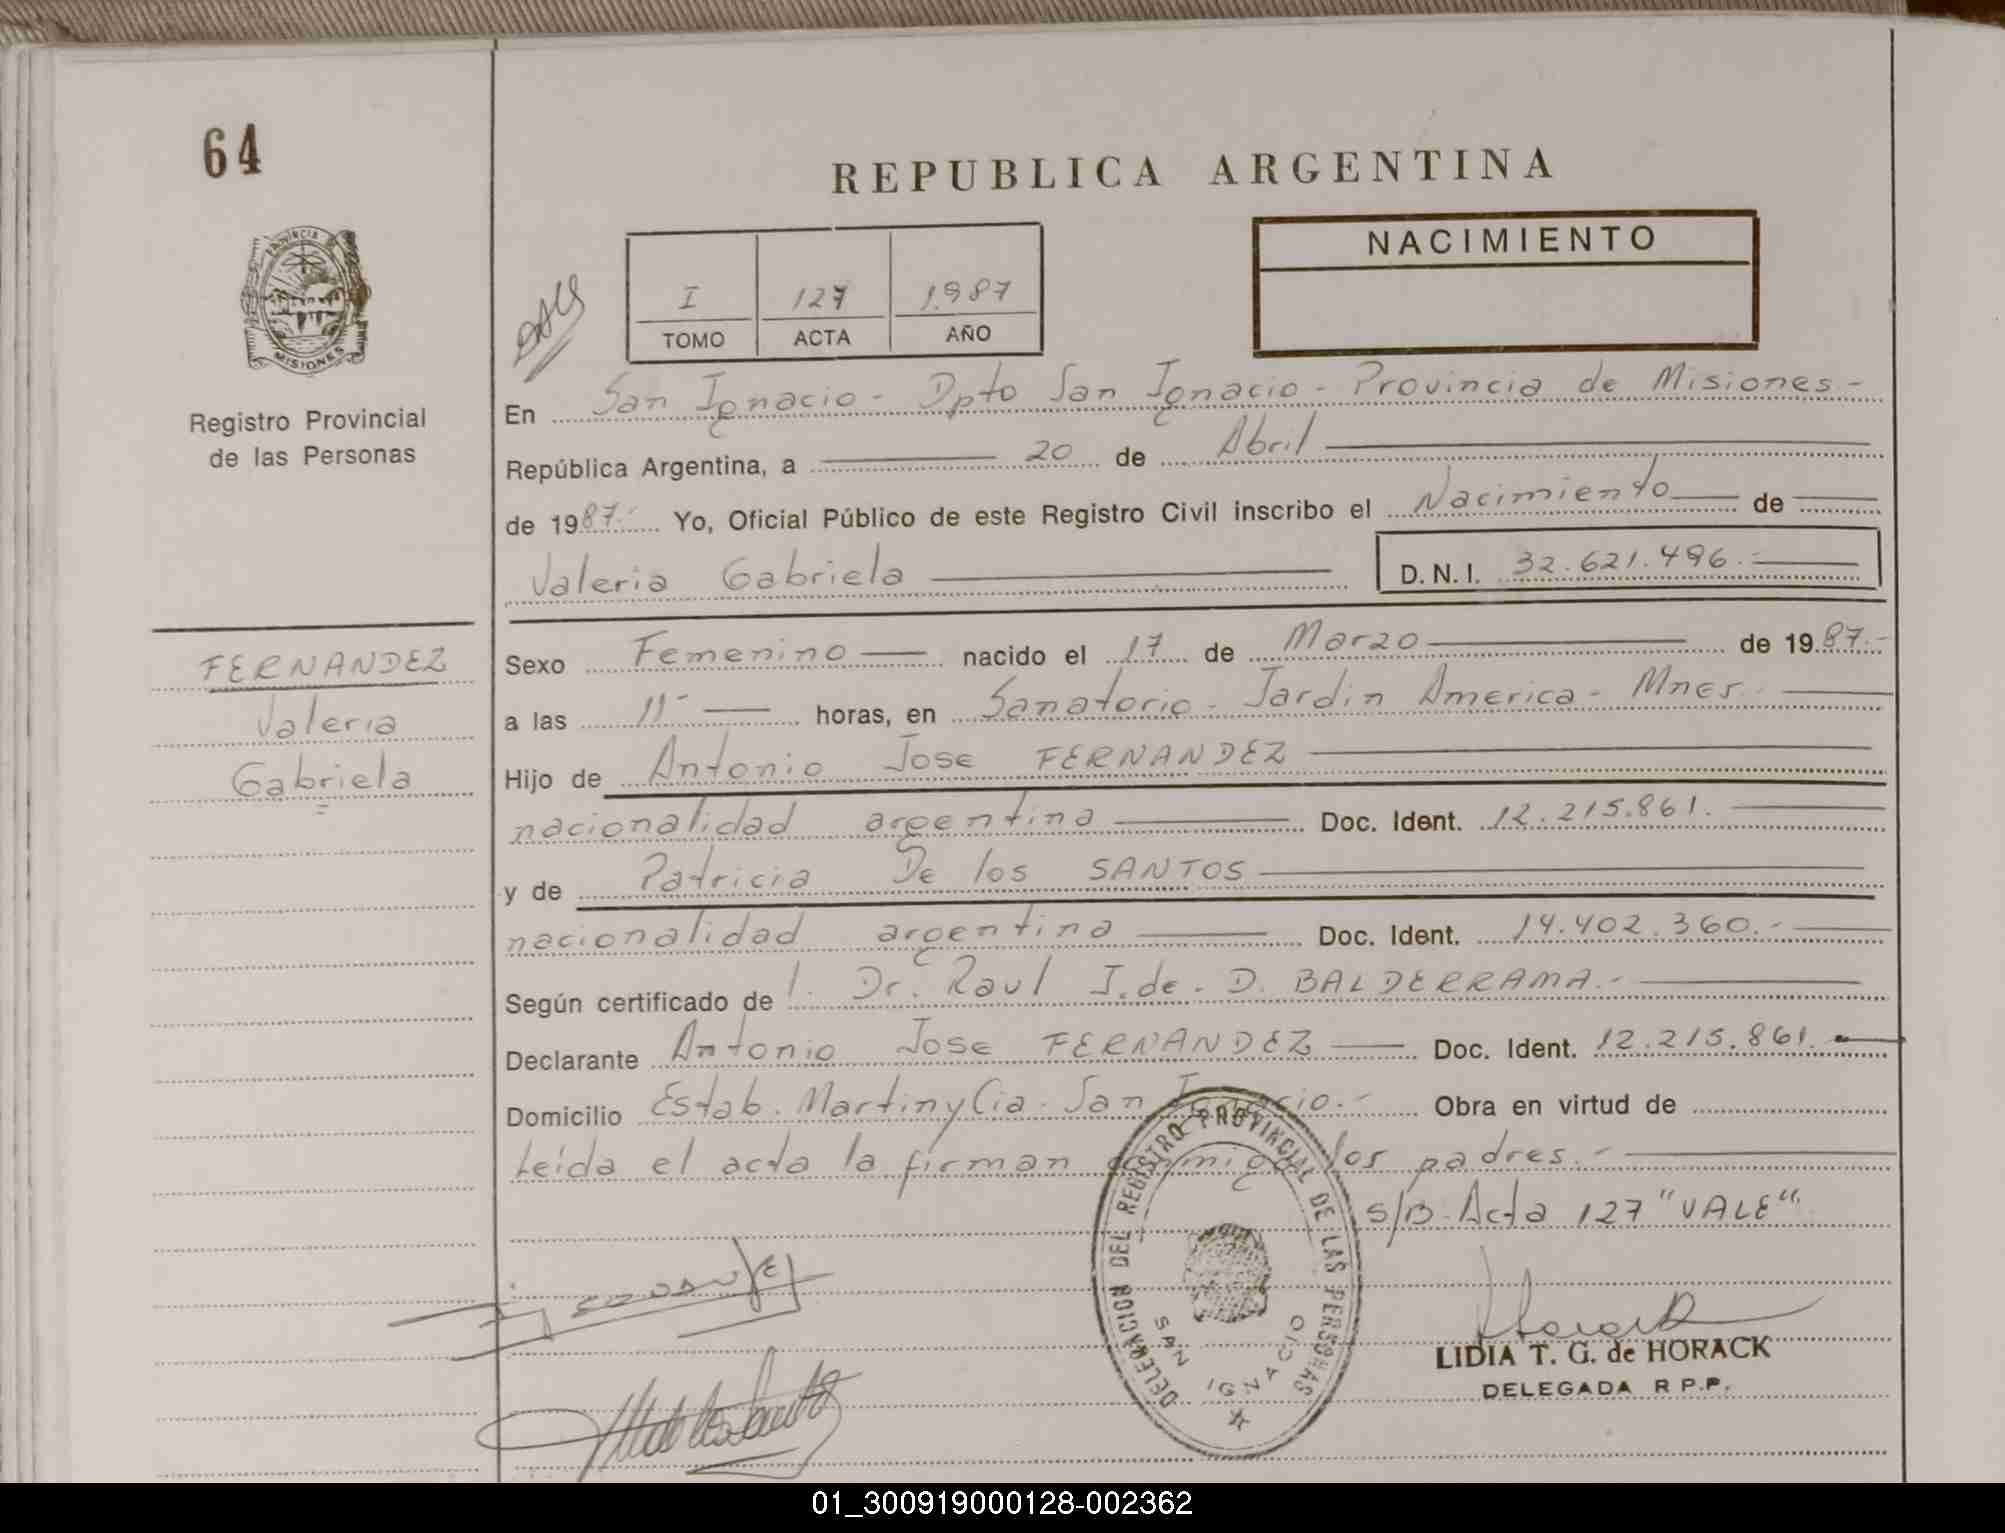 64
REPUBLICA ARGENTINA
PROVINCIA DE MISIONES
NACIMIENTO
I 127 1.987
TOMO ACTA AÑO
Registro Provincial
de las Personas
En San Ignacio - Dpto San Ignacio - Provincia de Misiones -
República Argentina, a 20 de Abril
de 1987.- Yo, Oficial Público de este Registro Civil inscribo el Nacimiento de
Valeria Gabriela D.N.I. 32.621.496.-
FERNANDEZ
Valeria
Gabriela
Sexo Femenino nacido el 17 de Marzo de 1987.-
a las 11- horas, en Sanatorio - Jardin America - Mnes.
Hijo de Antonio Jose FERNANDEZ
nacionalidad argentina Doc. Ident. 12.215.861.
y de Patricia De los SANTOS
nacionalidad argentina Doc. Ident. 14.402.360.-
Según certificado de l. Dr. Raul I. de. D. BALDERRAMA.-
Declarante Antonio Jose FERNANDEZ Doc. Ident. 12.215.861.
Domicilio Estab. Martin y Cia - San Ignacio.- Obra en virtud de
Leida el acta la firman conmigo los padres.-
S/B. Acta 127 "VALE"
DELEGACION DEL REGISTRO PROVINCIAL DE LAS PERSONAS
SAN IGNACIO
Horack
LIDIA T. G. de HORACK
DELEGADA R P.P.
01_300919000128-002362